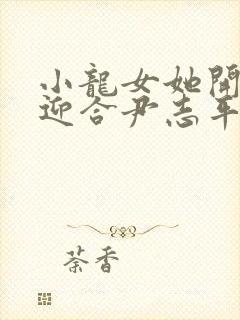 小龍女她開
迎合尹志平
荼香